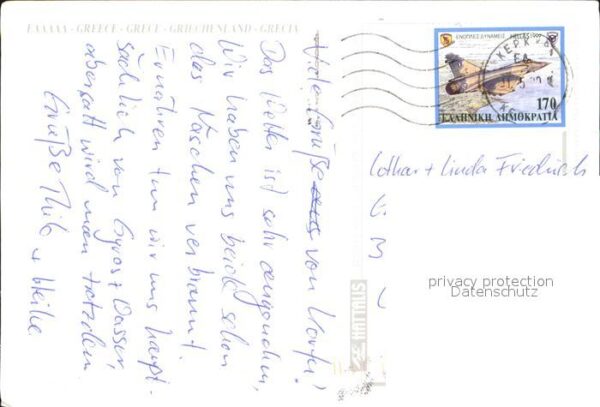 ΕΛΛΑΔΑ - GREECE - GRÈCE - GRIECHENLAND - GRECIA
Viele Grüße aus von Korfu!
Das Wetter ist sehr angenehm,
Wir haben uns beide schon
das Näschen verbrannt.
Ernähren tun wir uns haupt-
sächlich von Gyros + Wasser,
aber satt wird man trotzdem.
Grüße Thilo + Heike
ΕΝΟΠΛΕΣ ΔΥΝΑΜΕΙΣ HELLAS 1999
170
ΕΛΛΗΝΙΚΗ ΔΗΜΟΚΡΑΤΙΑ
ΚΕΡΚ
Lothar + Linda Friedrich
privacy protection
Datenschutz
HAITALIS